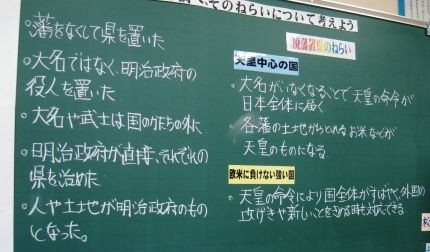 、そのねらいについて考えよう
廃藩置県のねらい
。藩をなくして県を置いた
。大名ではなく、明治政府の
役人を置いた
。大名や武士は国のかたちの外に
。明治政府が直接、それぞれの
県を治めた
。人や土地が明治政府のもの
となった。
天皇中心の国
・大名がいなくなることで天皇の命令が
日本全体に届く
・各藩の土地からとれるお米などが
天皇のものになる
欧米に負けない強い国
・天皇の命令により国全体がすばやく、外国の
攻げきや新しいことをきめる時も対応できる